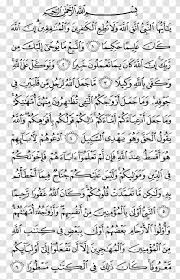 بِسْمِ ٱللَّهِ ٱلرَّحْمَٰنِ ٱلرَّحِيمِ
يَٰٓأَيُّهَا ٱلنَّبِىُّ ٱتَّقِ ٱللَّهَ وَلَا تُطِعِ ٱلْكَٰفِرِينَ وَٱلْمُنَٰفِقِينَ إِنَّ ٱللَّهَ
كَانَ عَلِيمًا حَكِيمًا ١ وَٱتَّبِعْ مَا يُوحَىٰٓ إِلَيْكَ مِن
رَّبِّكَ إِنَّ ٱللَّهَ كَانَ بِمَا تَعْمَلُونَ خَبِيرًا ٢ وَتَوَكَّلْ عَلَى ٱللَّهِ
وَكَفَىٰ بِٱللَّهِ وَكِيلًا ٣ مَّا جَعَلَ ٱللَّهُ لِرَجُلٍ مِّن قَلْبَيْنِ فِى
جَوْفِهِۦ وَمَا جَعَلَ أَزْوَٰجَكُمُ ٱلَّٰٓـِٔى تُظَٰهِرُونَ مِنْهُنَّ أُمَّهَٰتِكُمْ
وَمَا جَعَلَ أَدْعِيَآءَكُمْ أَبْنَآءَكُمْ ذَٰلِكُمْ قَوْلُكُم بِأَفْوَٰهِكُمْ وَٱللَّهُ
يَقُولُ ٱلْحَقَّ وَهُوَ يَهْدِى ٱلسَّبِيلَ ٤ ٱدْعُوهُمْ لِءَابَآئِهِمْ
هُوَ أَقْسَطُ عِندَ ٱللَّهِ فَإِن لَّمْ تَعْلَمُوٓا۟ ءَابَآءَهُمْ فَإِخْوَٰنُكُمْ فِى
ٱلدِّينِ وَمَوَٰلِيكُمْ وَلَيْسَ عَلَيْكُمْ جُنَاحٌ فِيمَآ أَخْطَأْتُم بِهِۦ
وَلَٰكِن مَّا تَعَمَّدَتْ قُلُوبُكُمْ وَكَانَ ٱللَّهُ غَفُورًا رَّحِيمًا ٥
ٱلنَّبِىُّ أَوْلَىٰ بِٱلْمُؤْمِنِينَ مِنْ أَنفُسِهِمْ وَأَزْوَٰجُهُۥٓ أُمَّهَٰتُهُمْ
وَأُو۟لُوا۟ ٱلْأَرْحَامِ بَعْضُهُمْ أَوْلَىٰ بِبَعْضٍ فِى كِتَٰبِ ٱللَّهِ مِنَ
ٱلْمُؤْمِنِينَ وَٱلْمُهَٰجِرِينَ إِلَّآ أَن تَفْعَلُوٓا۟ إِلَىٰٓ أَوْلِيَآئِكُم
مَّعْرُوفًا كَانَ ذَٰلِكَ فِى ٱلْكِتَٰبِ مَسْطُورًا ٦